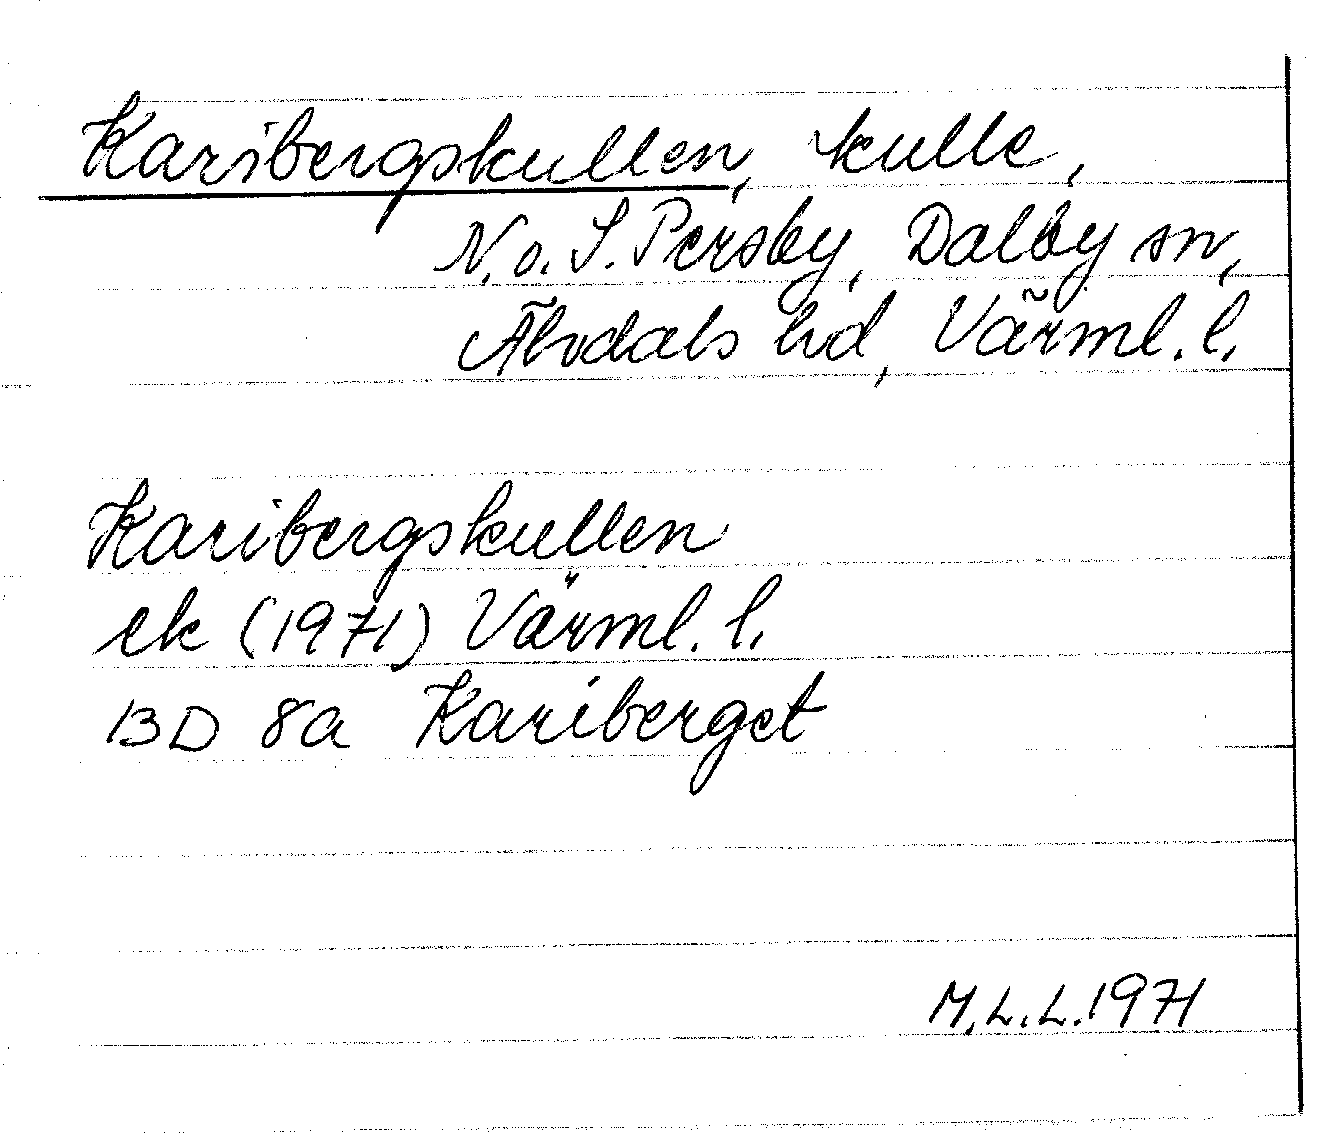 Karibergskullen, kulle,
N. o. S. Persby, Dalby sn,
Älvdals hd, Värml. l.
Karibergskullen
ek (1971) Värml. l.
13D 8a Kariberget
M.L.L. 1971